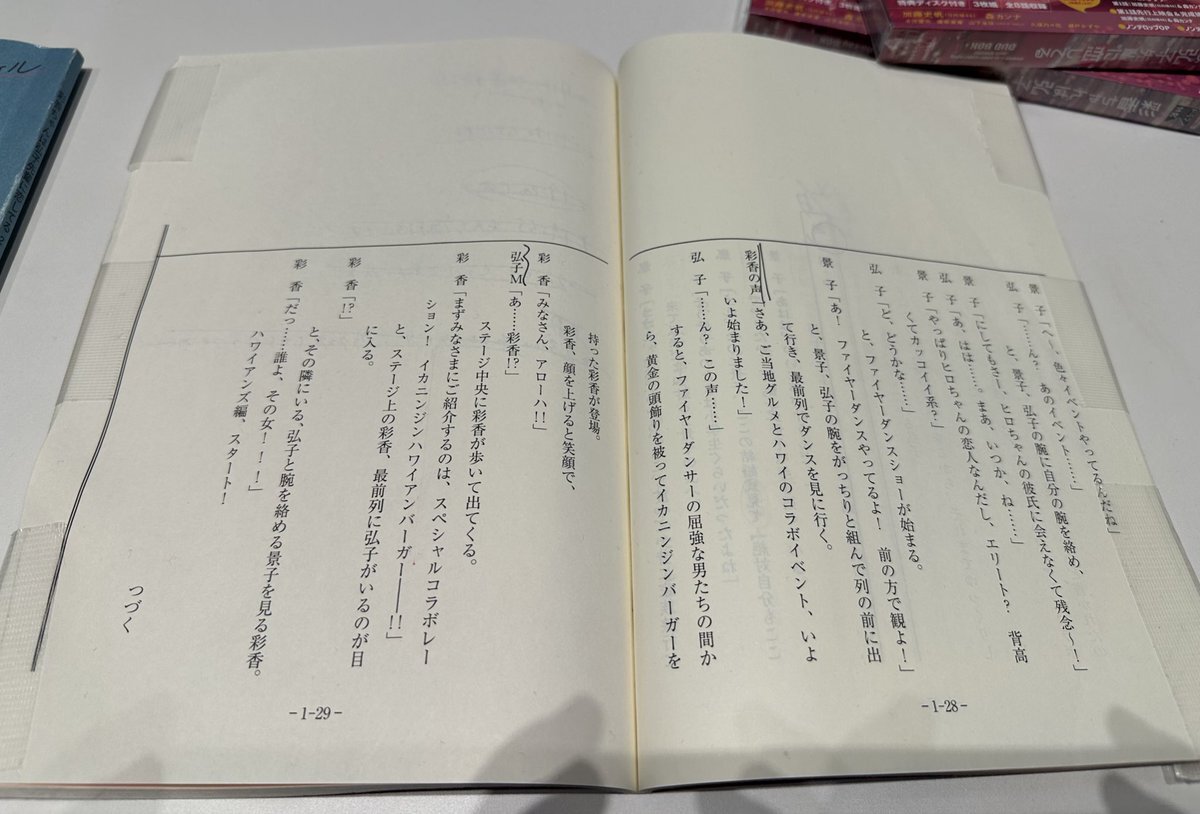 景　子「へー、色々イベントやってるんだね」
弘　子「……ん？　あのイベント……」
と、景子、弘子の腕に自分の腕を絡め、
景　子「にしてもさー、ヒロちゃんの彼氏に会えなくて残念〜！」
弘　子「あ、はは……。まあ、いつか、ね……」
景　子「やっぱりヒロちゃんの恋人なんだし、エリート？　背高
くてカッコイイ系？」
弘　子「ど、どうかな……」
と、ファイヤーダンスショーが始まる。
景　子「あ！　ファイヤーダンスやってるよ！　前の方で観よ！」
と、景子、弘子の腕をがっちりと組んで列の前に出
て行き、最前列でダンスを見に行く。
彩香の声「さあ、ご当地グルメとハワイのコラボイベント、いよ
いよ始まりました！」
弘　子「……ん？　この声……」
すると、ファイヤーダンサーの屈強な男たちの間か
ら、黄金の頭飾りを被ってイカニンジンバーガーを
-1-28-
持った彩香が登場。
彩香、顔を上げると笑顔で、
彩　香「みなさん、アローハ!!」
弘子M「あ……彩香!?」
ステージ中央に彩香が歩いて出てくる。
彩　香「まずみなさまにご紹介するのは、スペシャルコラボレー
ション！　イカニンジンハワイアンバーガー――!!」
と、ステージ上の彩香、最前列に弘子がいるのが目
に入る。
彩　香「!?」
と、その隣にいる、弘子と腕を絡める景子を見る彩香。
彩　香「だっ……誰よ、その女！！！」
ハワイアンズ編、スタート！
つづく
-1-29-